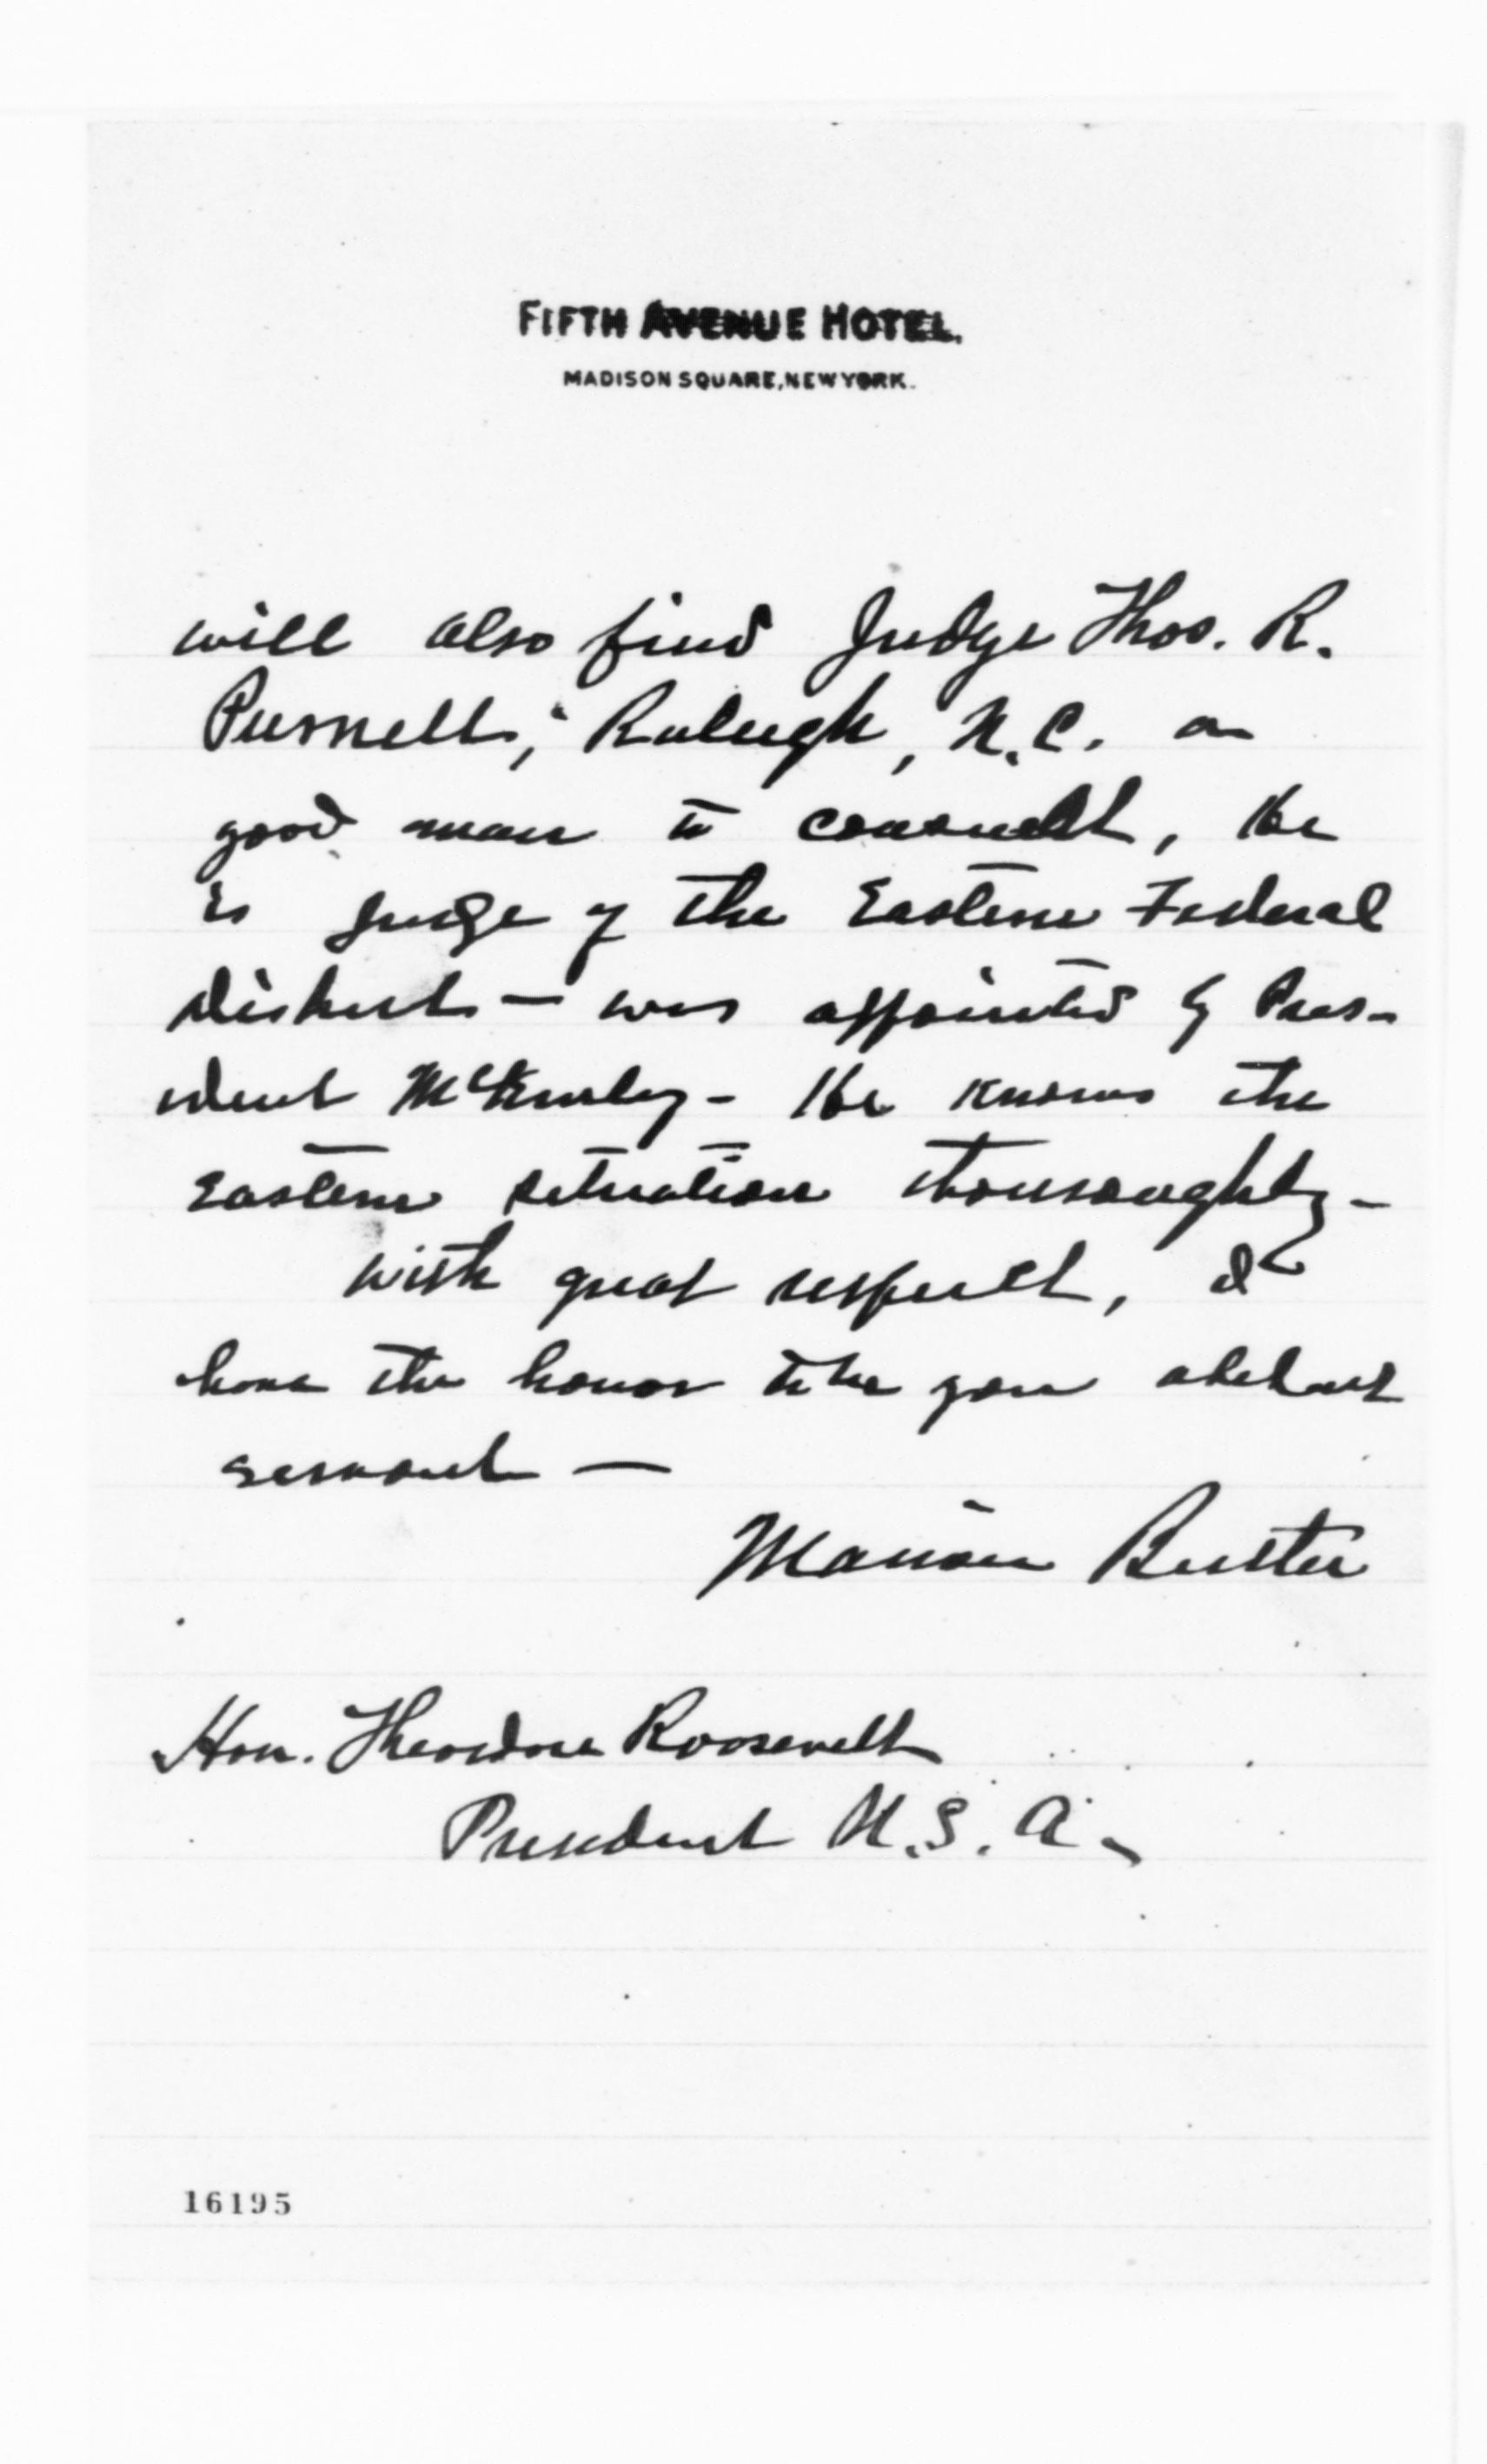 FIFTH AVENUE HOTEL.
MADISON SQUARE, NEW YORK.
will also find Judge Thos. R.
Purnell, Raleigh, N.C. a
good man to consult, He
is judge of the Eastern Federal
District — was appointed by Pres-
ident McKinley - He knows the
Eastern situation thoroughly -
With great respect, I
have the honor to be your obedient
servant —
Marion Butler
Hon. Theodore Roosevelt
President U.S.A.
16195